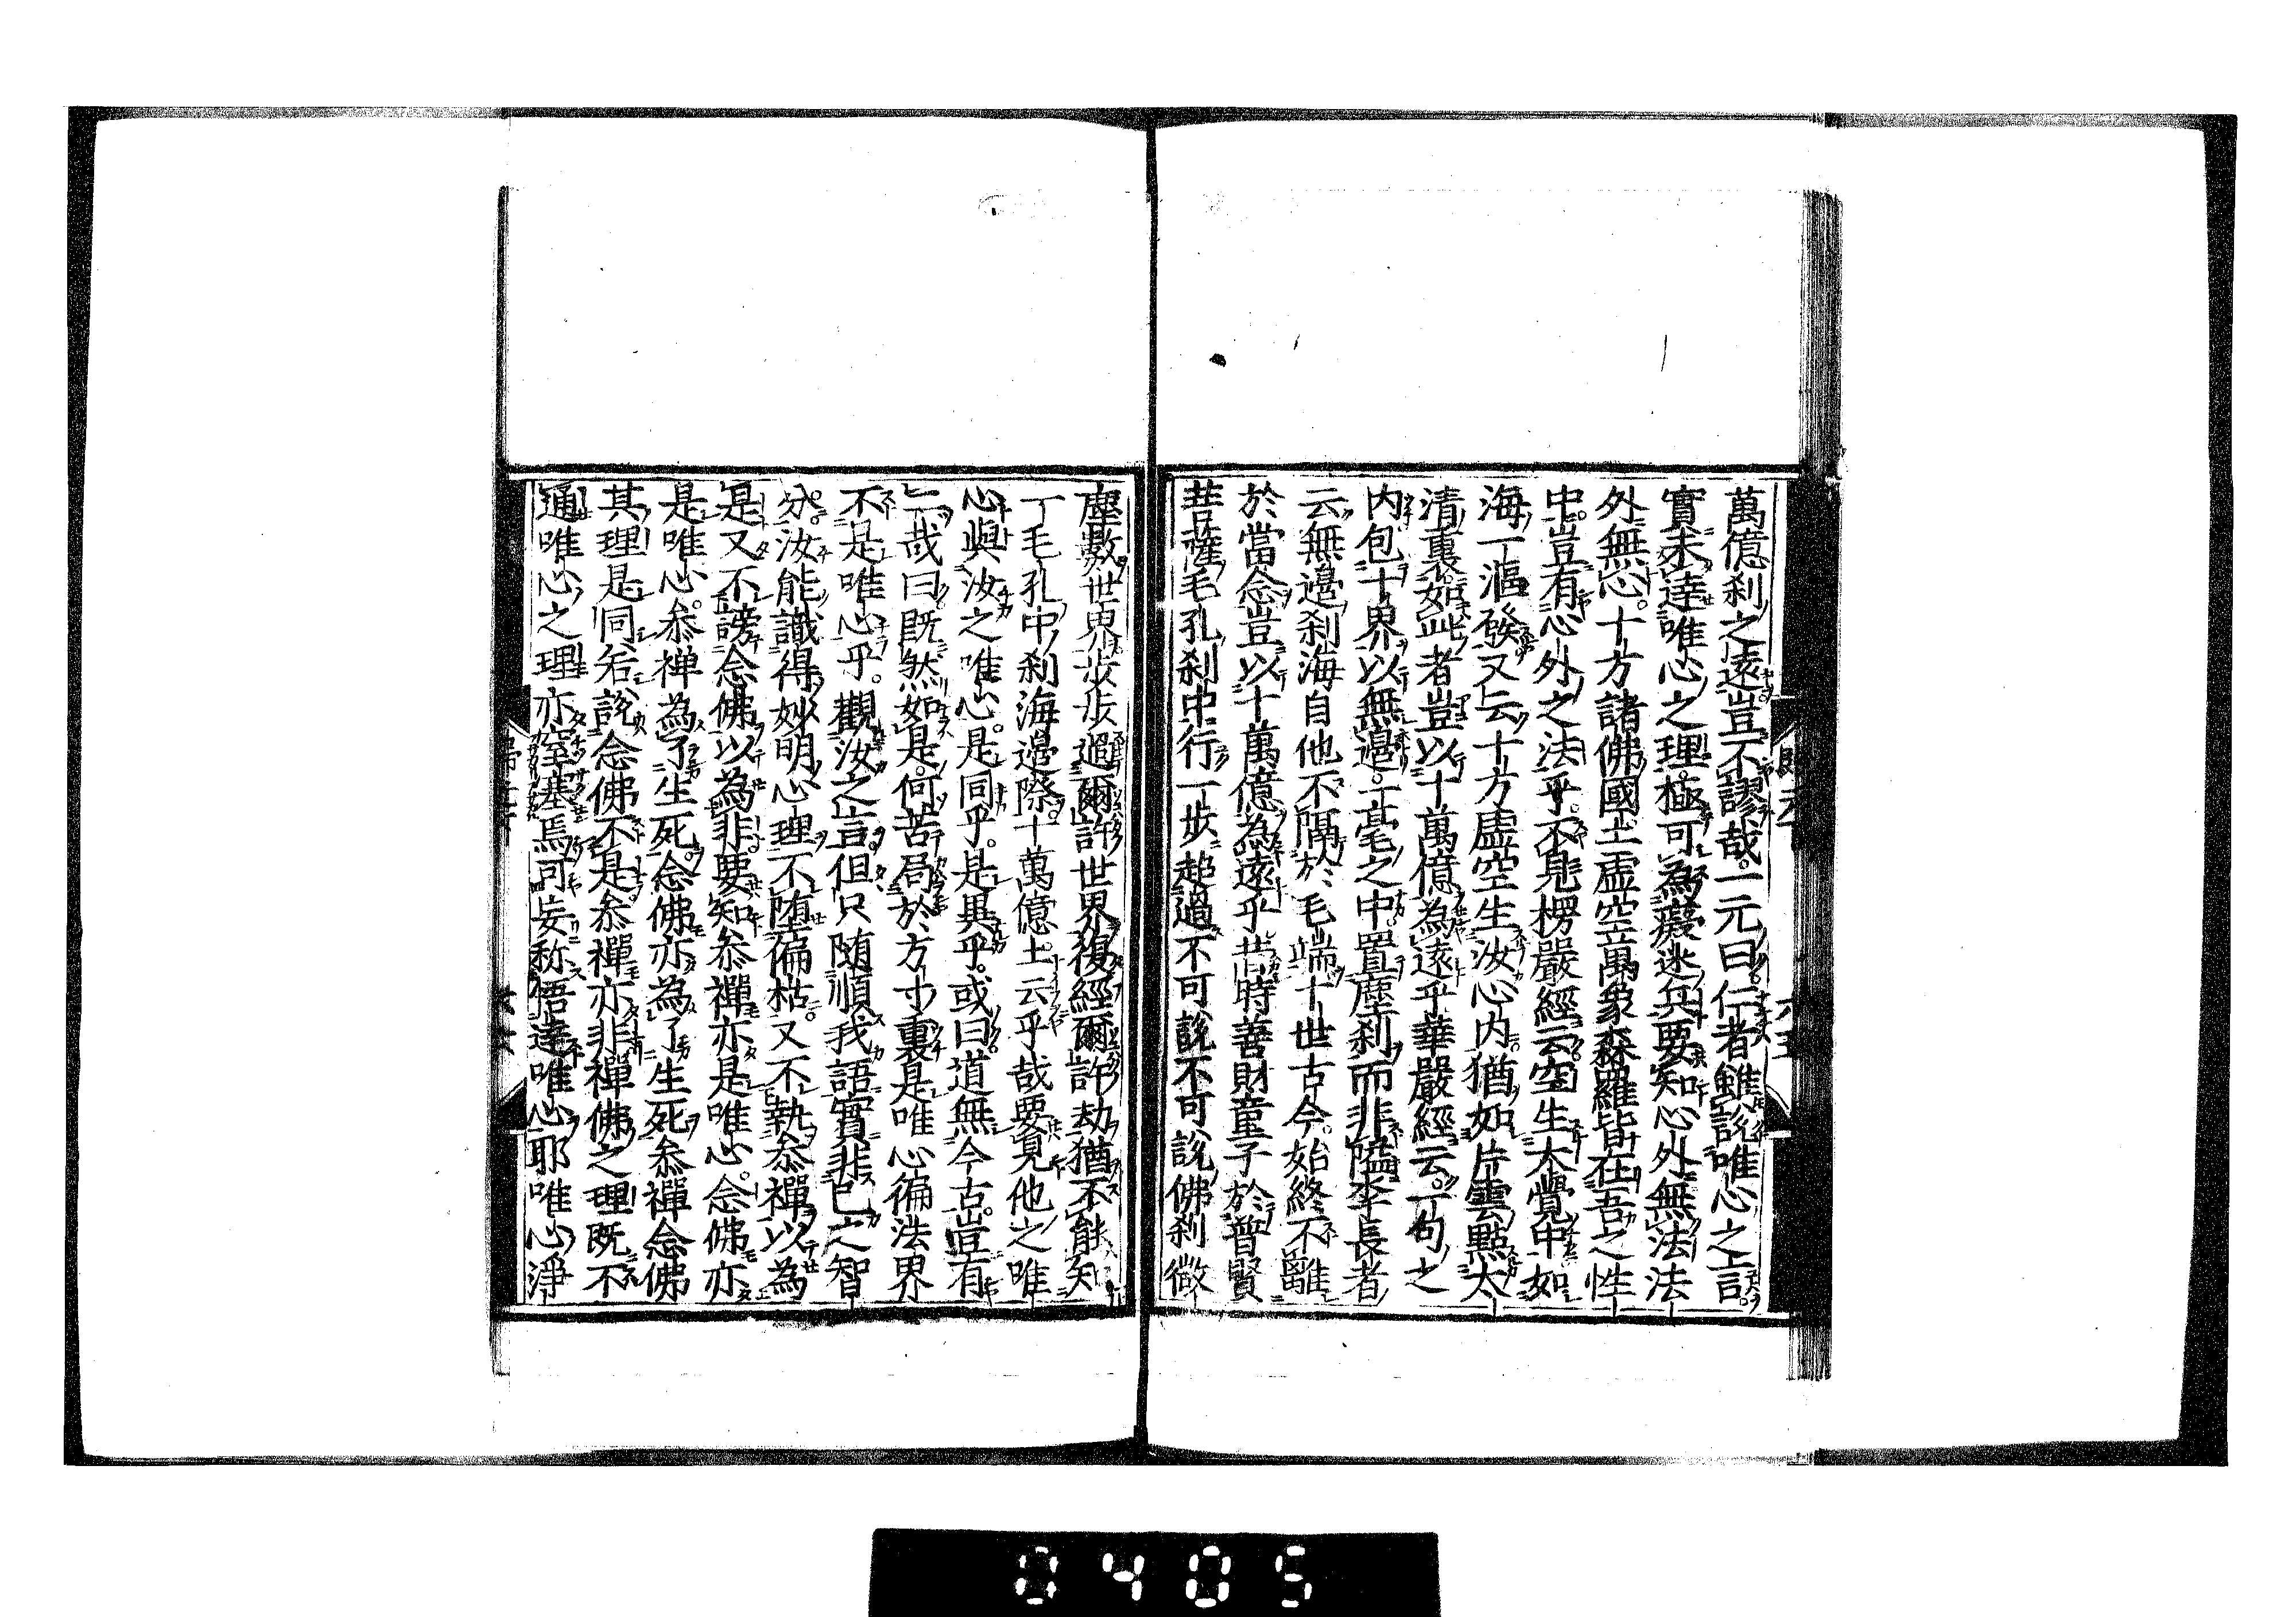 萬億刹之遠豈不謬哉。一元曰。仁者雖說唯心之言。
實未達唯心之理。極可為癡迷兵要知心外無法法
外無心。十方諸佛國土虛空萬象森羅皆在吾之性
中。豈有心外之法乎。不見楞嚴經云。空生大覺中如
海一漚發又云十方虛空生汝心內。猶如片雲點太
清裏。如此者豈以十萬億為遠乎華嚴經云。一句之
內包十界以無邊。一毫之中。置塵刹而非隘李長者
云無邊刹海自他不隔於毛端十世古今。始終不離
於當念豈以十萬億為遠乎昔時善財童子於普賢
菩薩毛孔刹中行一步超過不可說不可說佛刹微
塵數世界步步過爾許世界復經爾許劫猶不能知
一毛孔中刹海邊際。十萬億土云乎哉要見他之唯
心與汝之唯心。是同乎。是異乎。或曰。道無今古。豈有
二哉曰。既然如是。何苦局於方寸裏是唯心徧法界
不是唯心乎。觀汝之言但只随順我語實非已之智
分。汝能識得妙明心理不堕偏枯。又不執叅禪以為
是又不謗念佛以為非。要知叅禪亦是唯心。念佛亦
是唯心。叅禅為了生死。念佛亦為了生死叅禪念佛
其理是同。若說念佛不是叅禪亦非禪佛之理既不
通唯心之理亦窒塞焉可妄称悟達唯心耶唯心淨